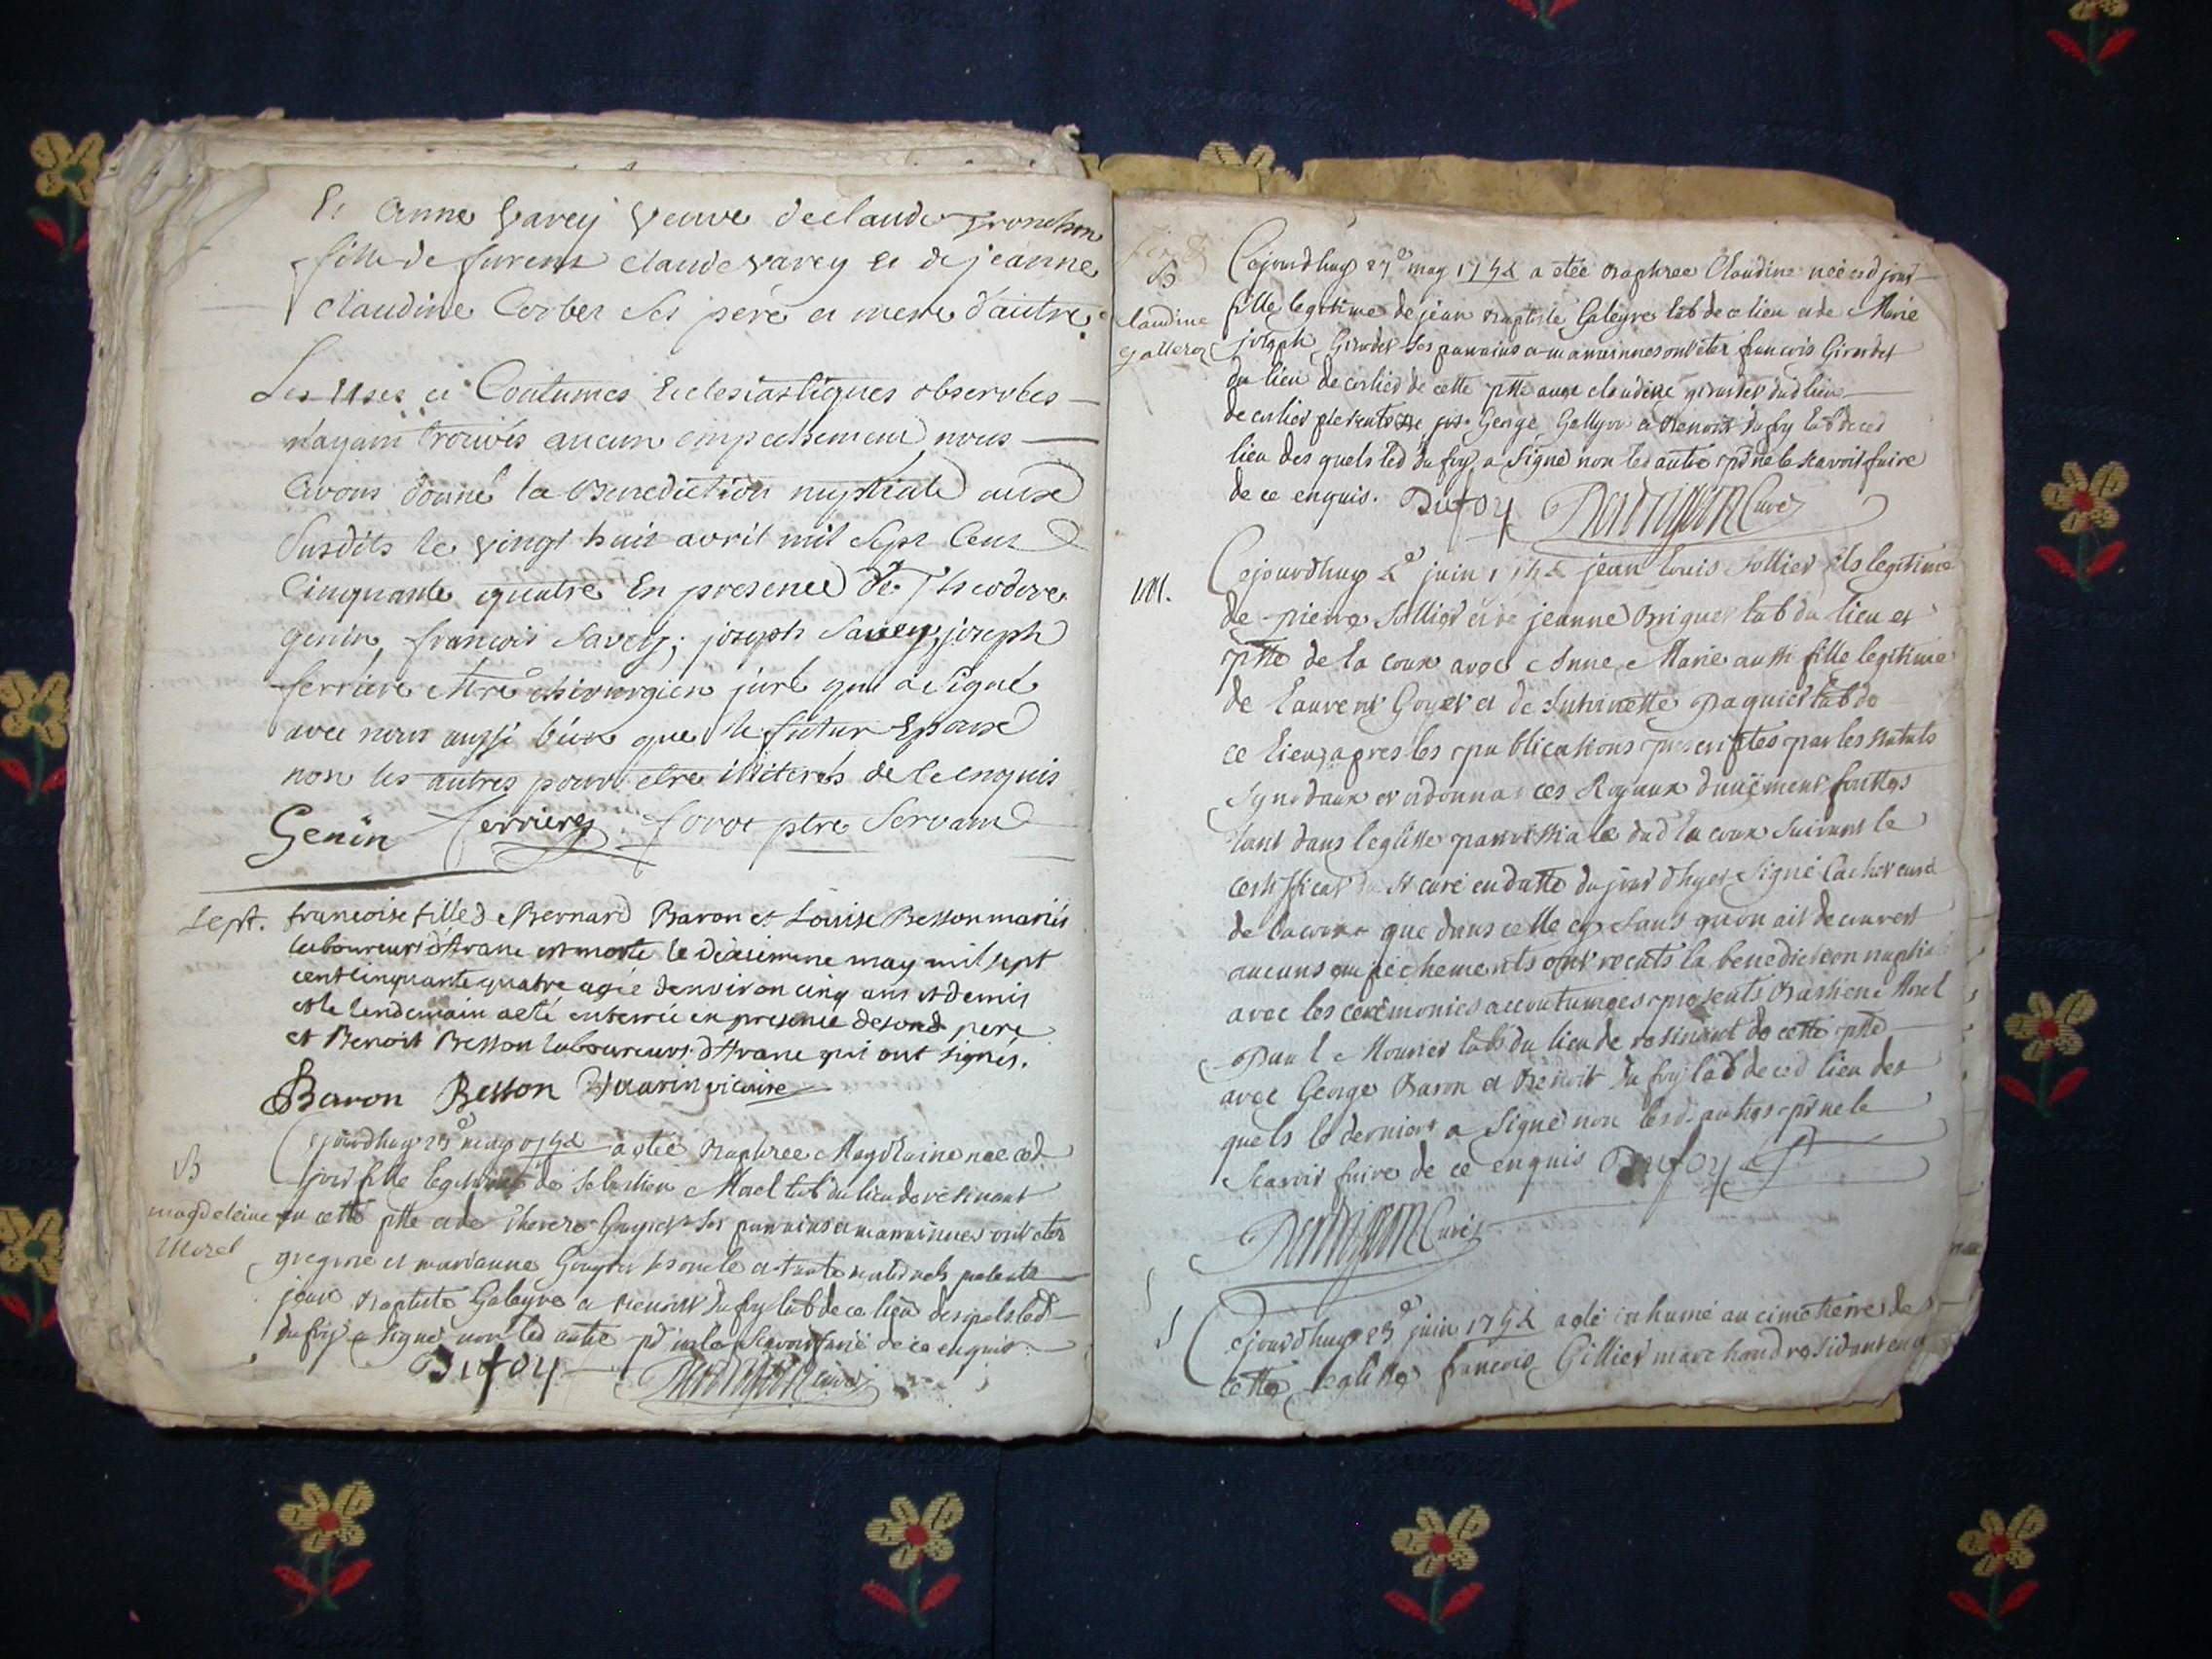 Et Anne Varey Veuve de claude Tronchon
fille de furent claude varey et de jeanne
claudine Corbet ses père et mere d'autre.
Les Uses et Coutumes Eclesiastiques observées
n'ayant trouvés aucun empechement nous
avons donné la Benediction nuptiale aux
susdits le vingt huit avril mil sept cent
cinquante quatre En presence de Theodore
genin, francois Savey, joseph Savey, joseph
ferriere chirurgien juré qui a signé
avec nous aussi bien que le futur Epoux
non les autres pour etre illiterés de ce enquis
Genin ferriere forot ptre Servant
Sept. francoise fille de Bernard Baron et Louise Besson mariés
laboureurs d'Avane est morte le dixieme may mil sept
cent cinquante quatre agée d'environ cinq ans et demis
et le lendemain a eté enterrée en presence de sond pere
et Benoit Besson laboureurs d'Avane qui ont signés.
Baron Besson vicaire
B
magdeleine
Morel
Cejourdhuy 25e may 1754 a etée Baptisee Magdelaine nee ced
jour fille legitime de Sebastien Morel lab du lieu de resinant
en cette psse et de Therese Goyet ses parrains et marrainnes ont etez
gregoire et marianne Goyet oncle et tante presents
jean Baptiste Galeyre et Benoist Dufoy lab de ce lieu desquels led
Dufoy a signé non led autre pr ne le scavoir faire de ce enquis.
Dufoy curé
B
claudine
galleron
Cejourdhuy 27e may 1754 a etée Baptisee Claudine née ced jour
fille legitime de jean Baptiste Galeyre lab de ce lieu et de Marie
joseph Girodet ses parrains et marrainnes ont etez francois Girardet
du lieu de corlier de cette psse avec claudine girardet dud lieu
de corlier presents George et Benoist Dufoy lab de ced
lieu des quels led Dufoy a signé non led autre pr ne le scavoir faire
de ce enquis. Dufoy curé
M.
Cejourdhuy 4e juin 1754 jean Louis Sollier fils legitime
de pierre Sollier et de jeanne Briguet lab du lieu et
psse de la coux avec Anne Marie aussi fille legitime
de Laurent Goyet et de Antoinette Paquier lab de
ce lieu, apres les publications prescriptes par les statuts
synodaux et ordonnances Royaux duüement faittes
tant dans leglisse parroissiale dud la coux suivant le
certificat du Sr curé en datte du jour d'hyer signé Cachet curé
de lacoux que dans celle cy sans quon ait decouvert
aucuns empechements ont recuts la benediction nuptiale
avec les ceremonies accoutumees presents Bastien Morel
paul Mounier lab du lieu de resinant de cette psse
avec George Baron et Benoit Dufoy lab de ced lieu des
quels le dernier a signé non lesd. autres pr ne le
scavoir faire de ce enquis Dufoy
curé
Cejourdhuy 23e juin 1754 a eté inhumé au cimetierre de
cette eglisse francois Gillier marchand residant en